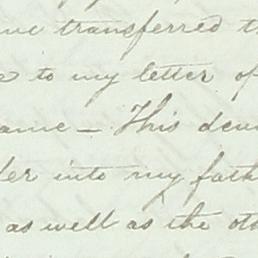 transferred
to my letter of
ame — This
into my fath
as well as the